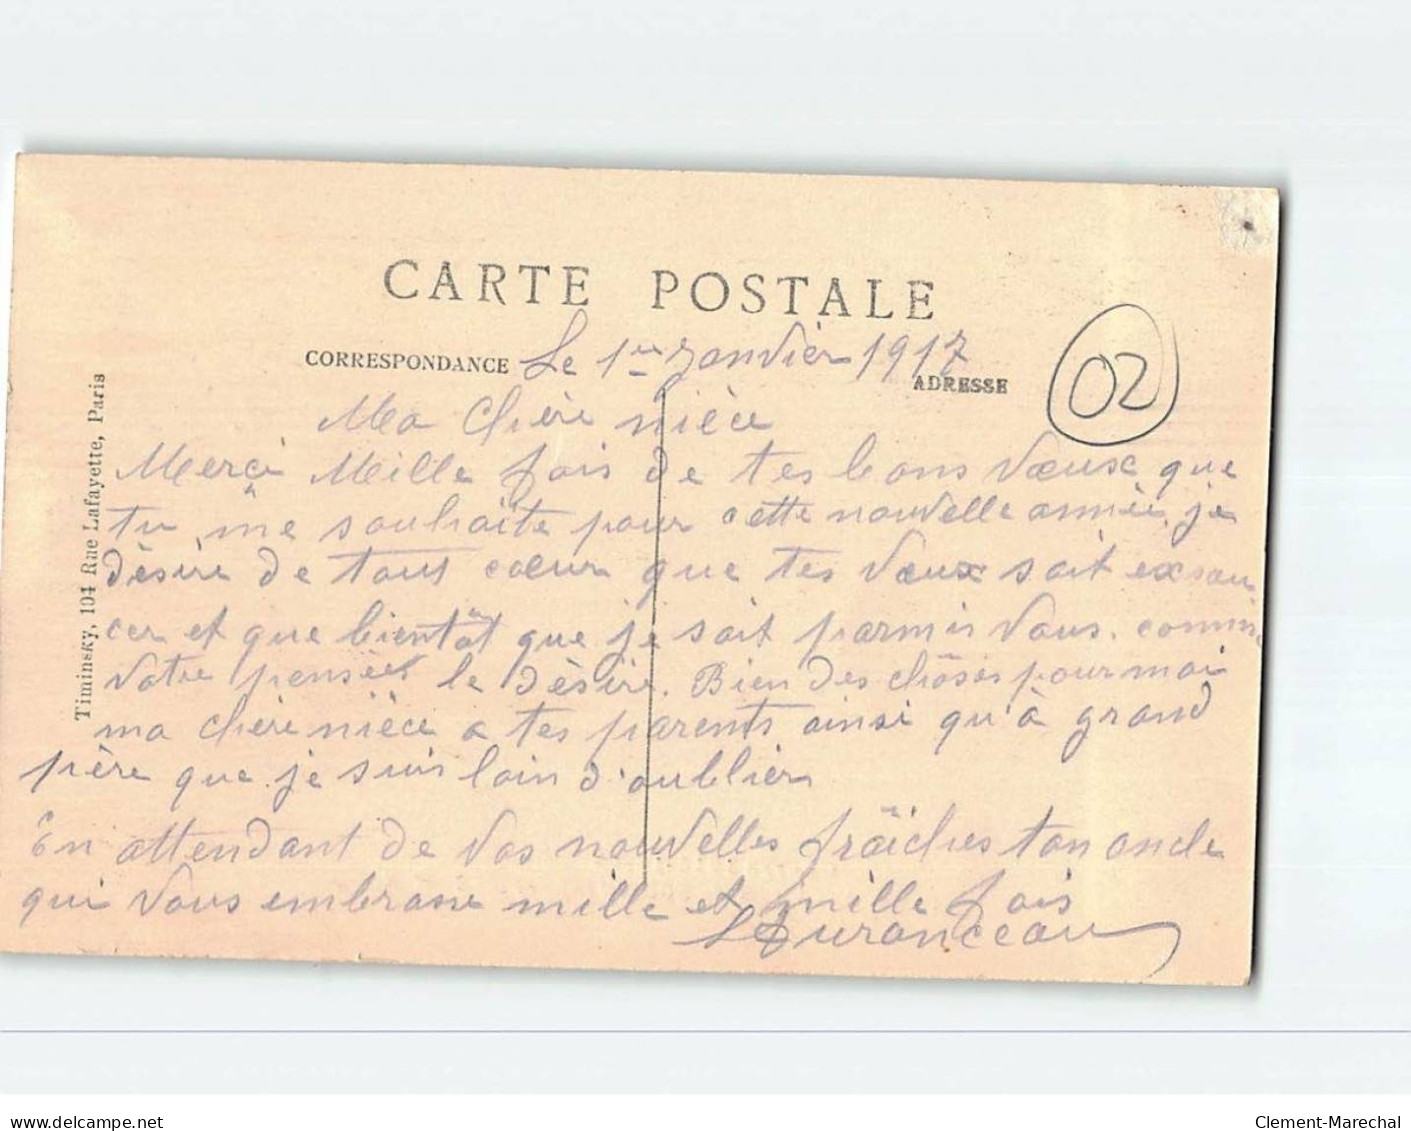 CARTE POSTALE
CORRESPONDANCE
Le 1er Janvier 1917
ADRESSE
02
Timinsky, 104 Rue Lafayette, Paris
Ma Chère nièce
Merci Mille fois de tes bons Vœux que
tu me souhaite pour cette nouvelle année, je
dèsire de tout cœur que tes Vœux soit exsau-
cer et que bientôt que je soit parmis Vous. comme
Votre pensées le dèsire. Bien des chôses pour moi
ma chère nièce a tes parents ainsi qu'à grand
père que je suis loin d'oublier
En attendant de Vos nouvelles fraîches ton oncle
qui Vous embrasse mille et mille fois
Duranceau
delcampe.net
Clement-Marechal